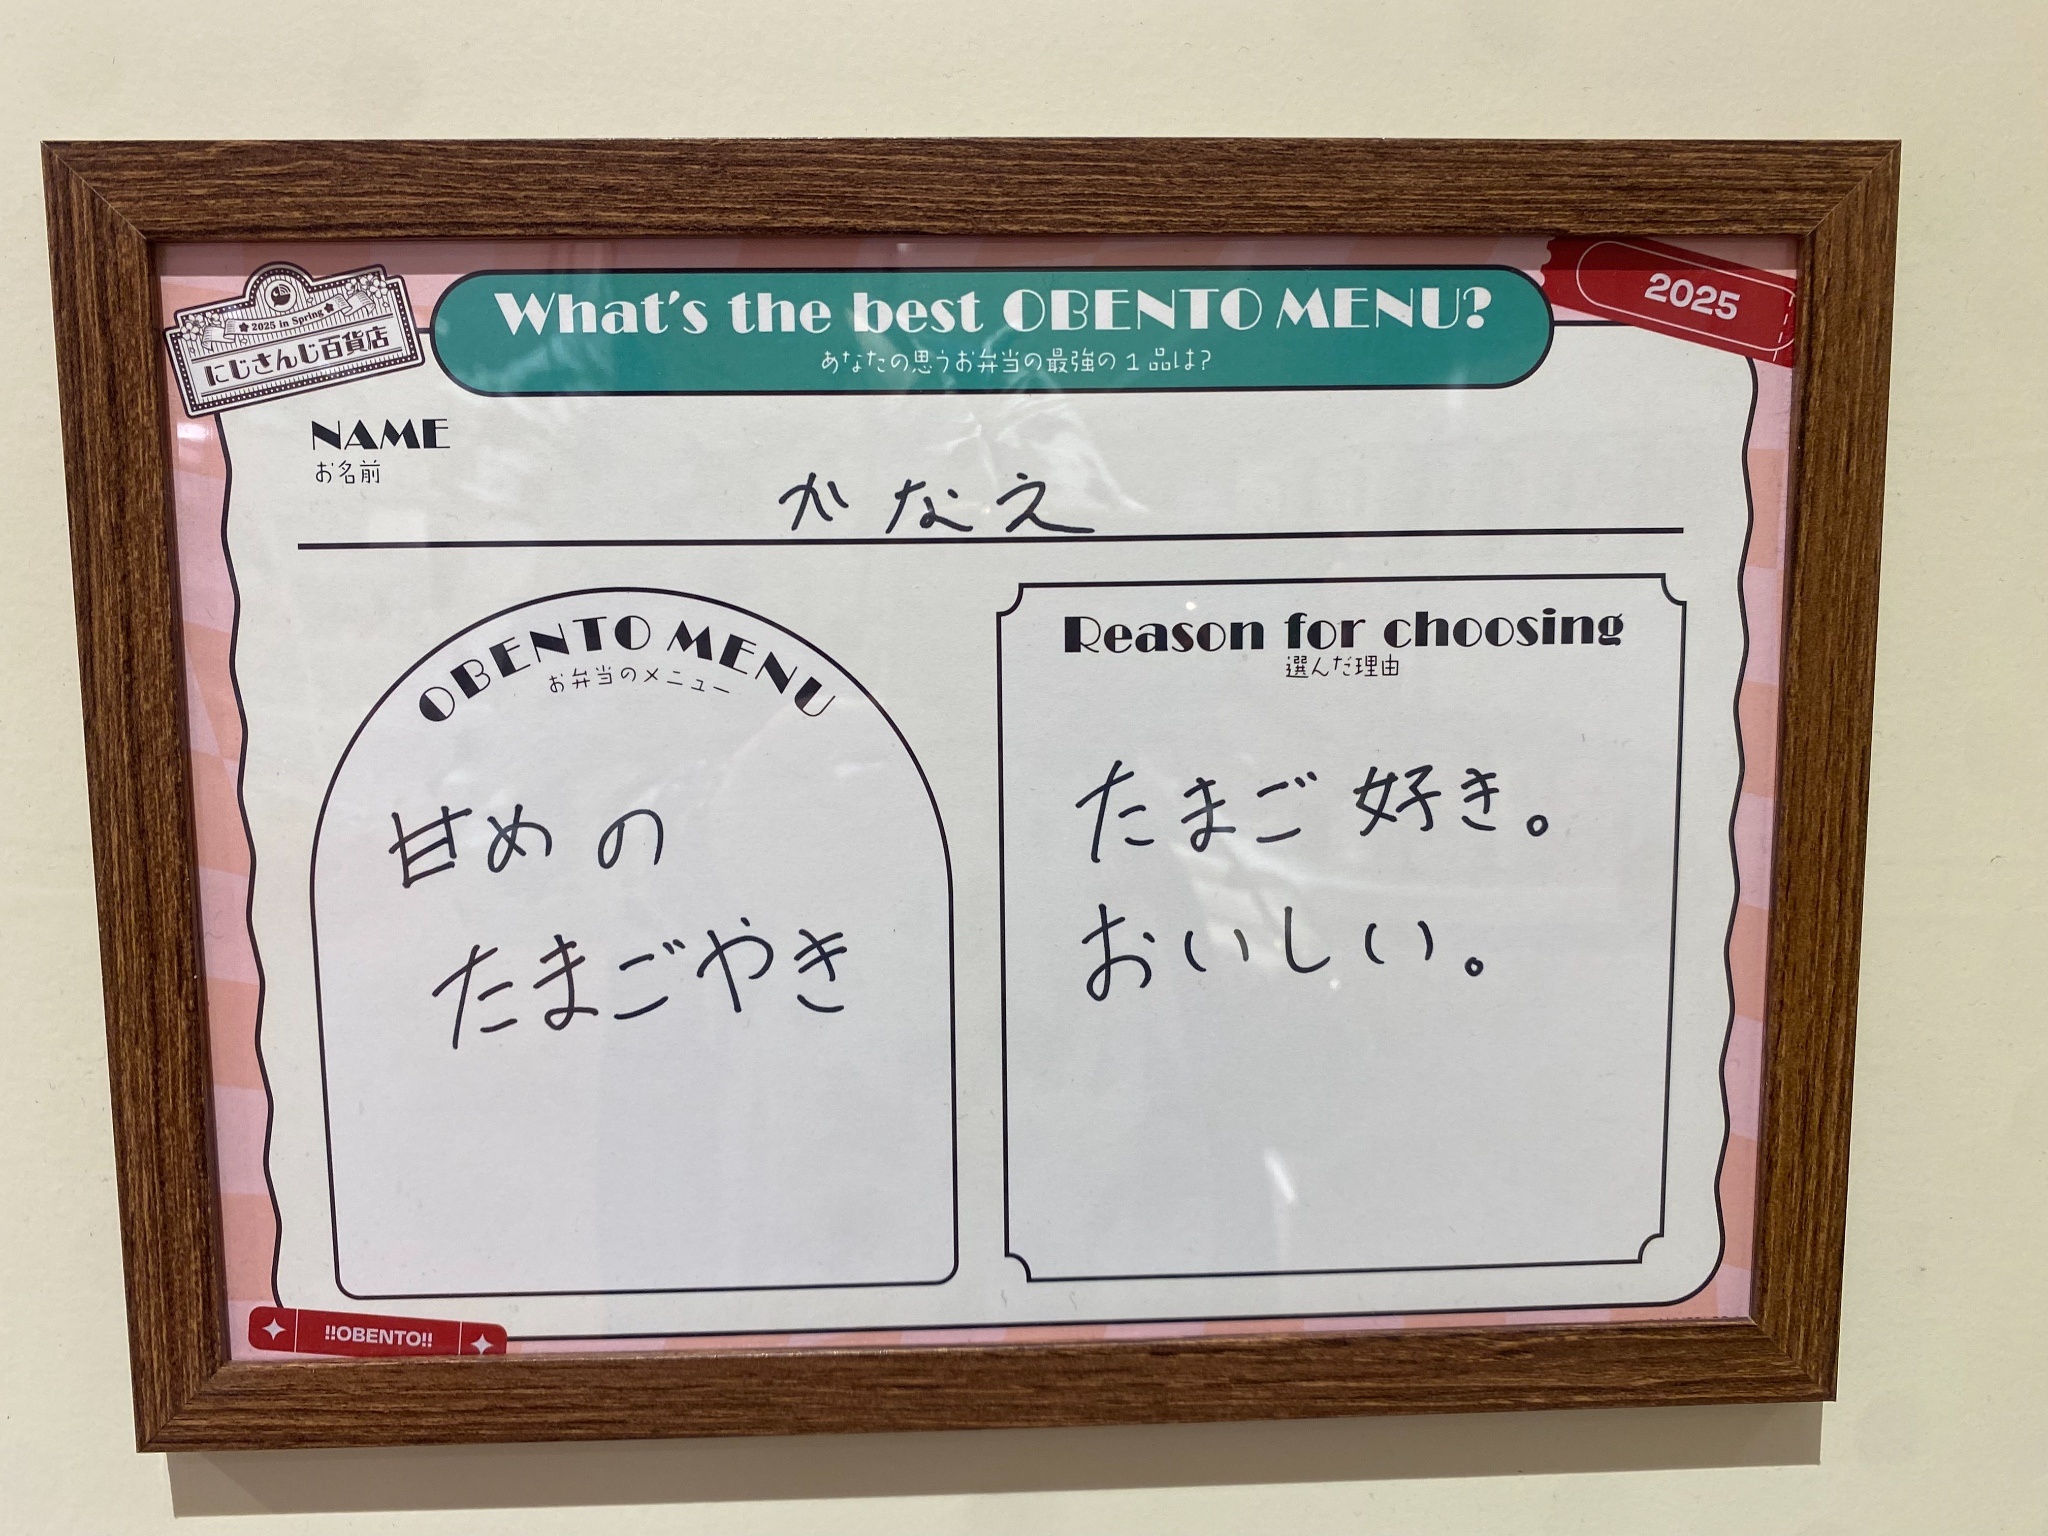 2025 in Spring
にじさんじ百貨店
What's the best OBENTO MENU?
あなたの思うお弁当の最強の1品は?
2025
NAME
お名前
かなえ
OBENTO MENU
お弁当のメニュー
甘めの
たまごやき
Reason for choosing
選んだ理由
たまご好き。
おいしい。
!!OBENTO!!